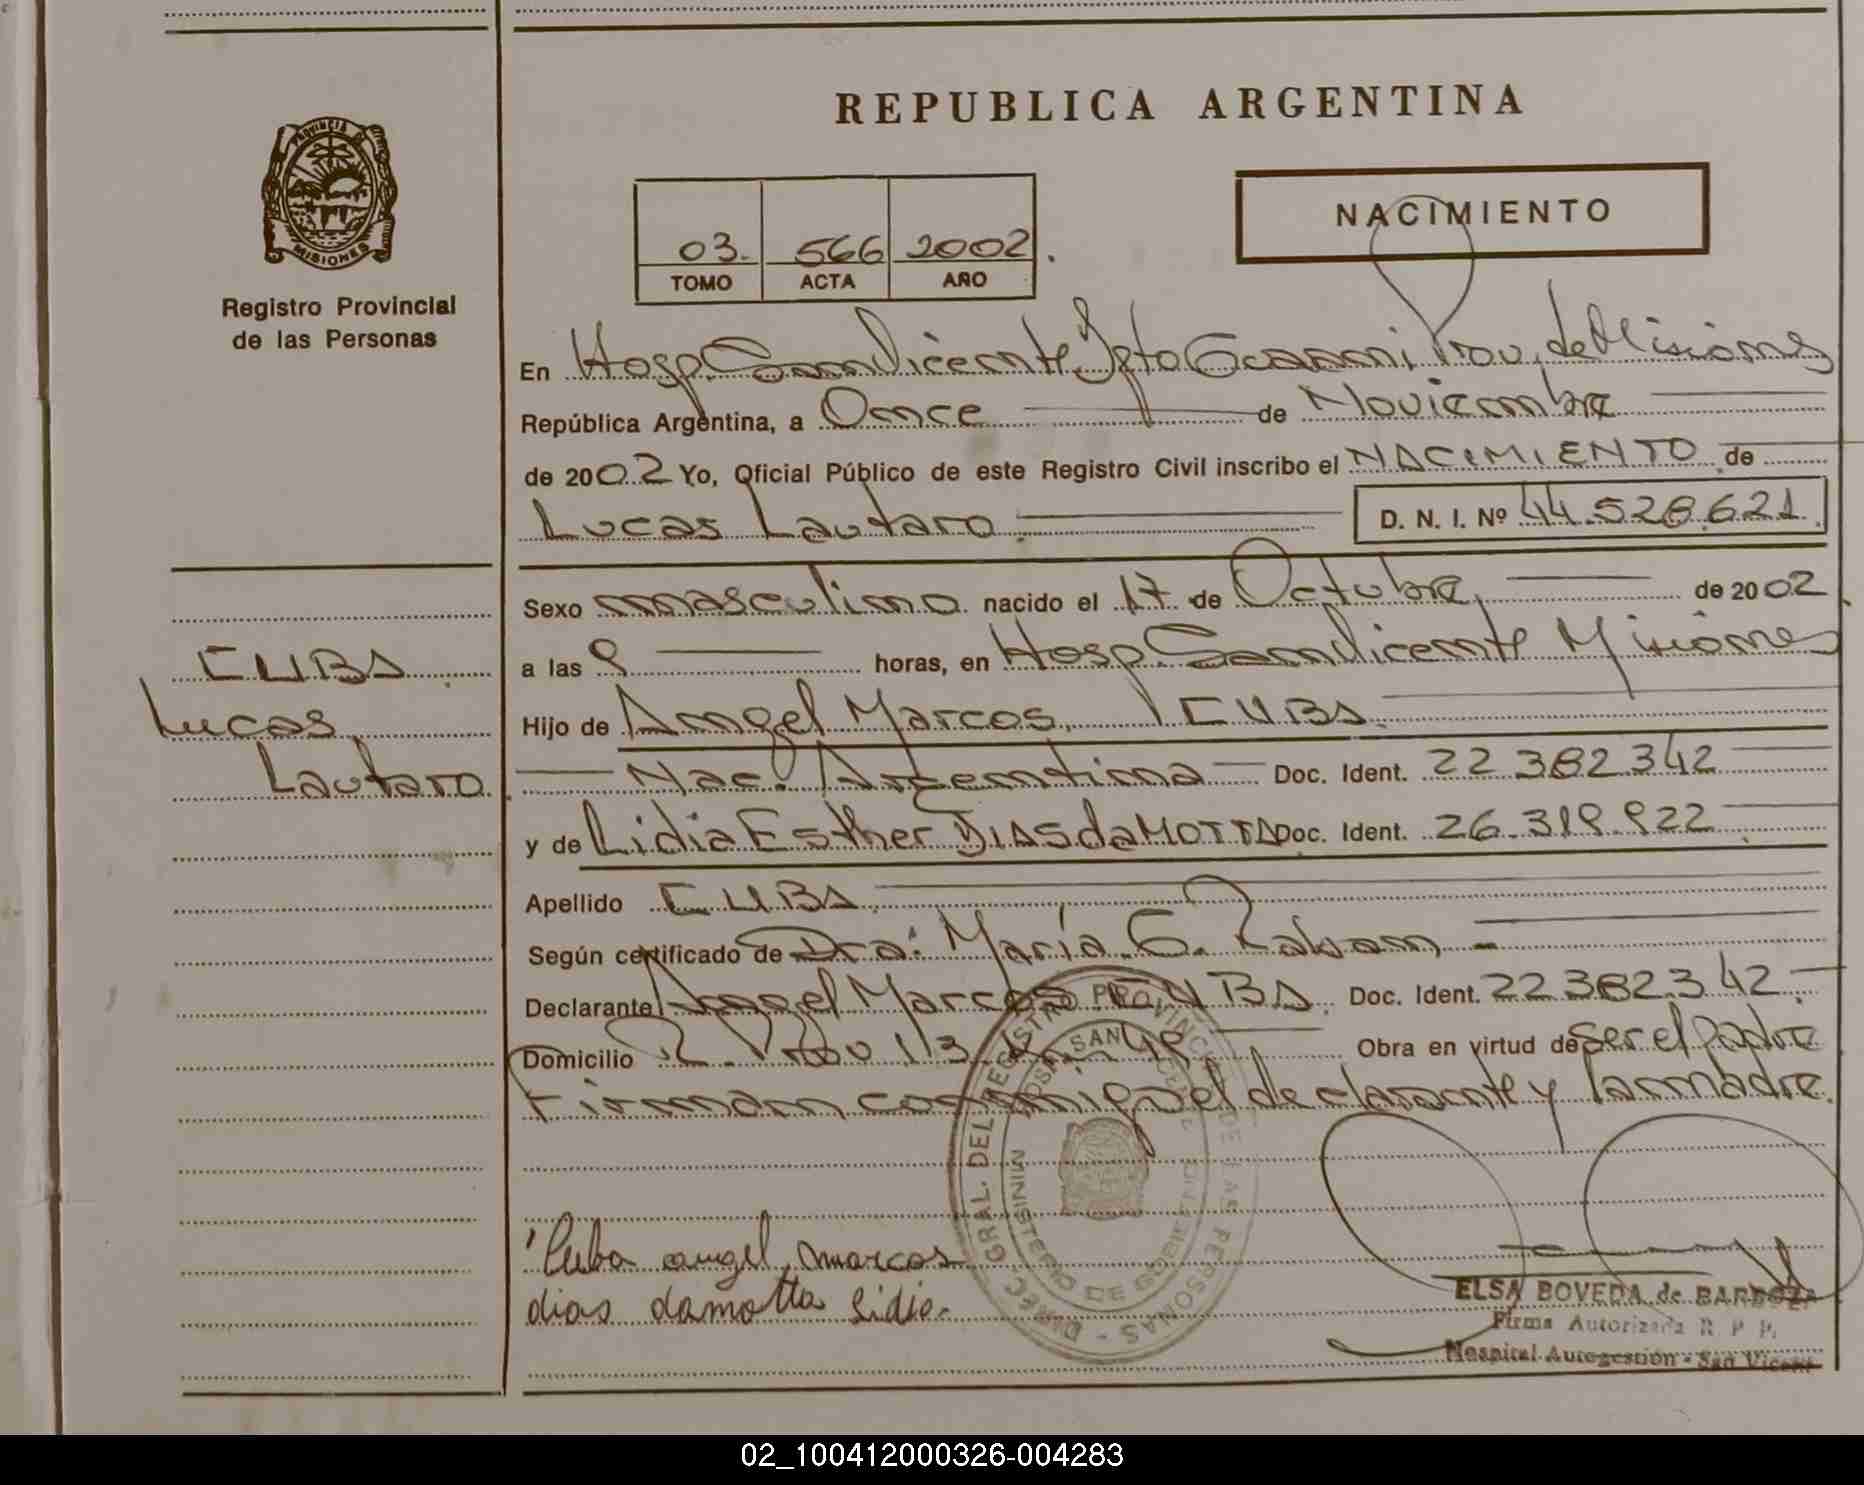 REPUBLICA ARGENTINA
PROVINCIA DE
MISIONES
Registro Provincial
de las Personas
03. 566 2002.
TOMO ACTA AÑO
NACIMIENTO
En Hosp. San Vicente Dpto Guarani Prov. de Misiones
República Argentina, a Once de Noviembre
de 2002 Yo, Oficial Público de este Registro Civil inscribo el NACIMIENTO de
Lucas Lautaro D. N. I. Nº 44.528.621
Sexo masculino nacido el 17 de Octubre de 2002
a las 9 horas, en Hosp. San Vicente Misiones
Hijo de Angel Marcos CUBA
Nac. Argentina Doc. Ident. 22 382 342
y de Lidia Esther DIAS da MOTTA Doc. Ident. 26.319.922
Apellido CUBA
Según certificado de Dra. María E.
Declarante Angel Marcos CUBA Doc. Ident. 22 382 342
Domicilio 113 Obra en virtud de ser el padre
Firman conmigo el declarante y la madre.
CUBA
Lucas
Lautaro
Cuba angel marcos
dias damotta lidia
DIREC. GRAL. DEL REGISTRO PROVINCIAL DE LAS PERSONAS
MINISTERIO DE GOBIERNO
HOSP. SAN
ELSA BOVEDA de BARBOZA
Firma Autorizada R. P. P.
Hospital Autogestión - San Vicente
02_100412000326-004283